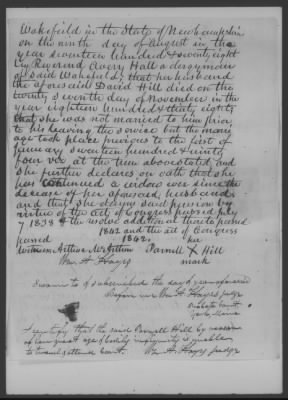 Wakefield in the State of New hampshire
on the ninth day of August in the
year seventeen hundred & seventy eight
by Reverend Avery Hall a clergyman
of said Wakefield; that her husband
the aforesaid David Hill died on the
twenty seventh day of November in the
year eighteen hundred & thirty eight
that she was not married to him prior
to his leaving the service but the marri
age took place previous to the first of
January seventeen hundred & ninety
four viz at the time above stated and
she further declares on oath that she
has continued a widow ever since the
decease of her aforesaid husband
and that she claims said pension by
virtue of the act of Congress passed July
7 1838 & the resolve additional thereto passed
1842 and the act of Congress
passed 1842. her
Witness Parnell X Hill
Wm. H. Hayes mark
Sworn to & subscribed the day & year aforesaid
Before me Wm H. Hayes judge
Probate Court
York, Maine
I certify that the said Parnell Hill by reason
of her great age & bodily infirmity is unable
to travel & attend Court. Wm. H. Hayes judge